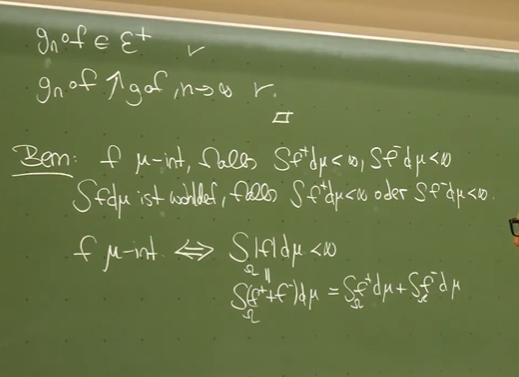 gₙ∘f ∈ ℰ⁺ ✓
gₙ∘f ↑ g∘f, n→∞ ✓.
□
Bem: f μ-int, falls ∫f⁺dμ<∞, ∫f⁻dμ<∞
∫fdμ ist wohldef, falls ∫f⁺dμ<∞ oder ∫f⁻dμ<∞.
f μ-int. ⇔ ∫_Ω |f|dμ<∞
||
∫_Ω (f⁺+f⁻)dμ = ∫_Ω f⁺dμ + ∫_Ω f⁻dμ